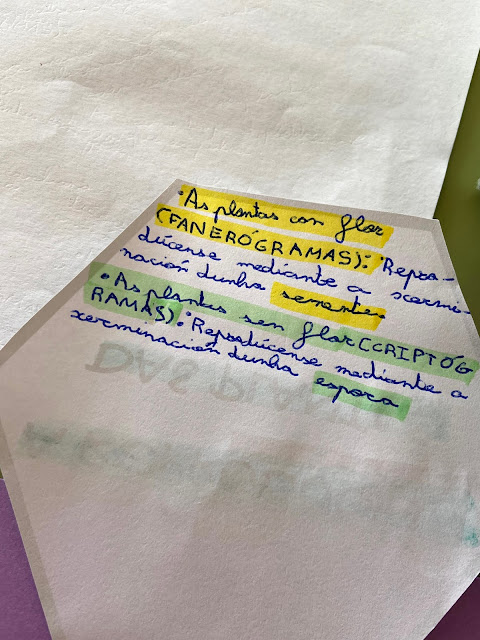 • As plantas con flor
(FANERÓGRAMAS): Repro-
dúcense mediante a xermi-
nación dunha semente.
• As plantas sen flor (CRIPTÓG
RAMAS): Reprodúcense mediante a
xerminación dunha espora